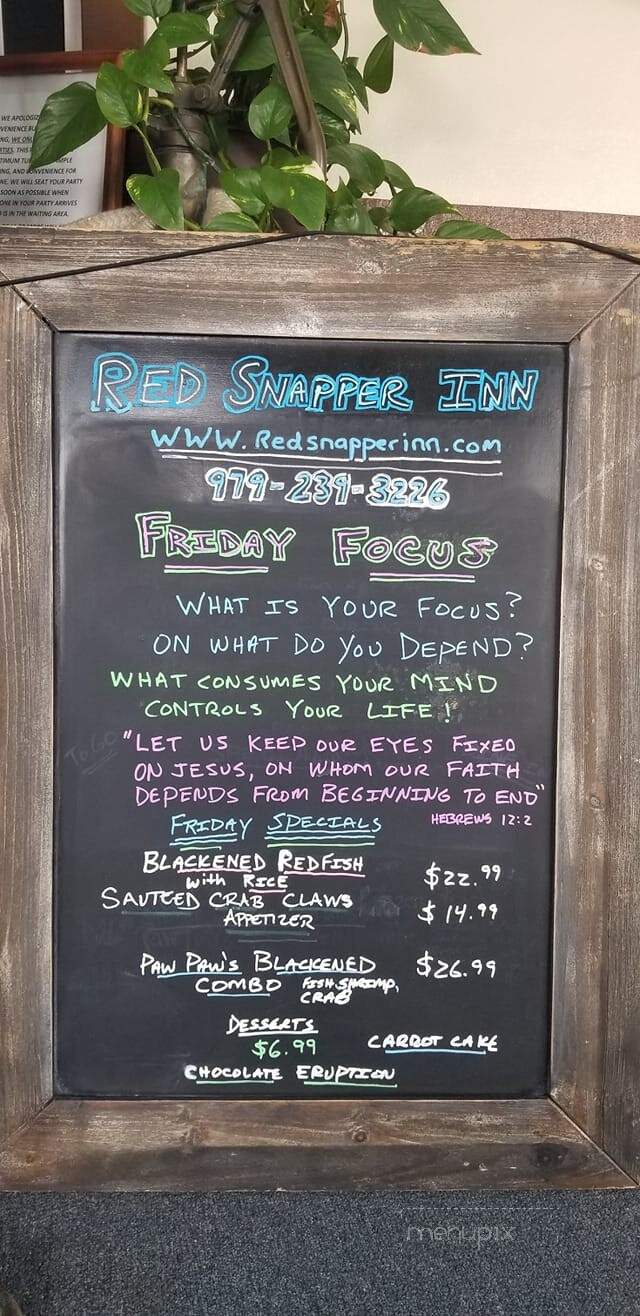 WE APOLOGIZ
VENIENCE BU
NG, WE ONL
RTIES. THIS
TIMUM TU MPLE
ING, AND CONVENIENCE FOR
NE. WE WILL SEAT YOUR PARTY
SOON AS POSSIBLE WHEN
ONE IN YOUR PARTY ARRIVES
IS IN THE WAITING AREA.
RED SNAPPER INN
WWW.Redsnapperinn.com
979-239-3226
FRIDAY FOCUS
WHAT IS YOUR FOCUS?
ON WHAT DO YOU DEPEND?
WHAT CONSUMES YOUR MIND
CONTROLS YOUR LIFE!
TO GO
"LET US KEEP OUR EYES FIXED
ON JESUS, ON WHOM OUR FAITH
DEPENDS FROM BEGINNING TO END"
HEBREWS 12:2
FRIDAY SPECIALS
BLACKENED REDFISH $22.99
with RICE
SAUTEED CRAB CLAWS $14.99
APPETIZER
PAW PAW'S BLACKENED $26.99
COMBO FISH, SHRIMP,
CRAB
DESSERTS
$6.99 CARROT CAKE
CHOCOLATE ERUPTION
menupix